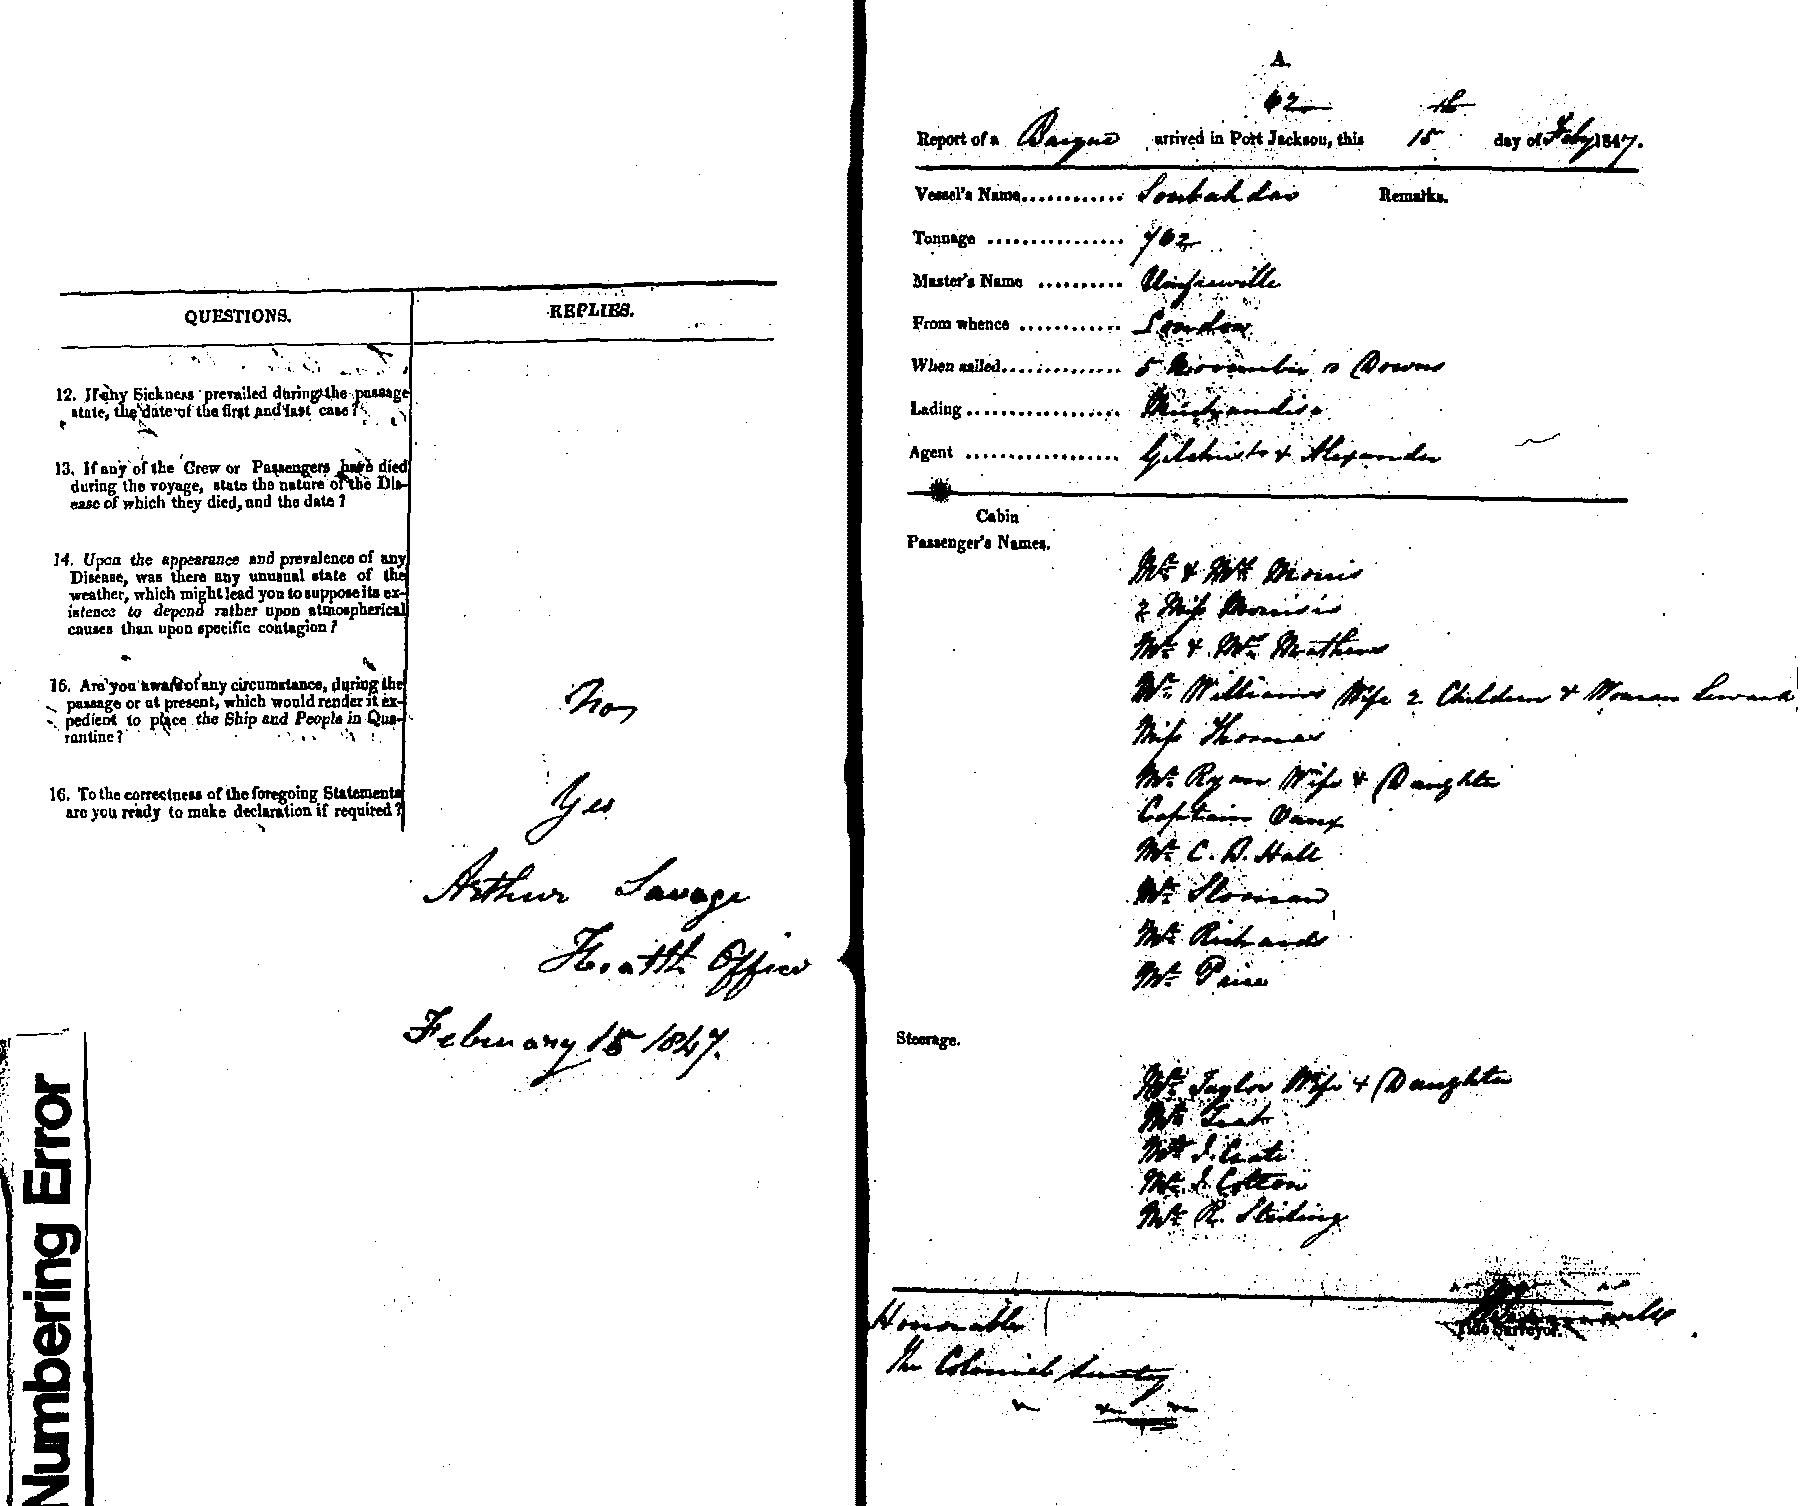 QUESTIONS.
REPLIES.
12. If any Sickness prevailed during the passage
state, the date of the first and last case?
13. If any of the Crew or Passengers have died
during the voyage, state the nature of the Dis-
ease of which they died, and the date?
14. Upon the appearance and prevalence of any
Disease, was there any unusual state of the
weather, which might lead you to suppose its ex-
istence to depend rather upon atmospherical
causes than upon specific contagion?
15. Are you aware of any circumstance, during the
passage or at present, which would render it ex-
pedient to place the Ship and People in Qua-
rantine?
No
16. To the correctness of the foregoing Statements
are you ready to make declaration if required?
Yes
Arthur Savage
Health Officer
February 15 1847.
Numbering Error
A.
62
Report of a Barque arrived in Port Jackson, this 15th day of Feby 1847.
Vessel's Name Soubahdar
Remarks.
Tonnage 762
Master's Name Umfreville
From whence London
When sailed 5 November Downs
Lading Merchandise
Agent Gilchrist & Alexander
Cabin
Passenger's Names.
Mr & Mrs Morris
2 Miss Morris's
Mr & Mrs Mathews
Mr Williams Wife 2 Children & Woman Servant
Miss Thomas
Mr Ryan Wife & Daughter
Captain Vaux
Mr C. D. Hall
Mr Sloman
Mr Richards
Mr Price
Steerage.
Mr Taylor Wife & Daughter
Mr
Mr J.
Mr J. Cotton
Mr R. Stirling
Tide Surveyor.
Honorable
The Colonial Secretary